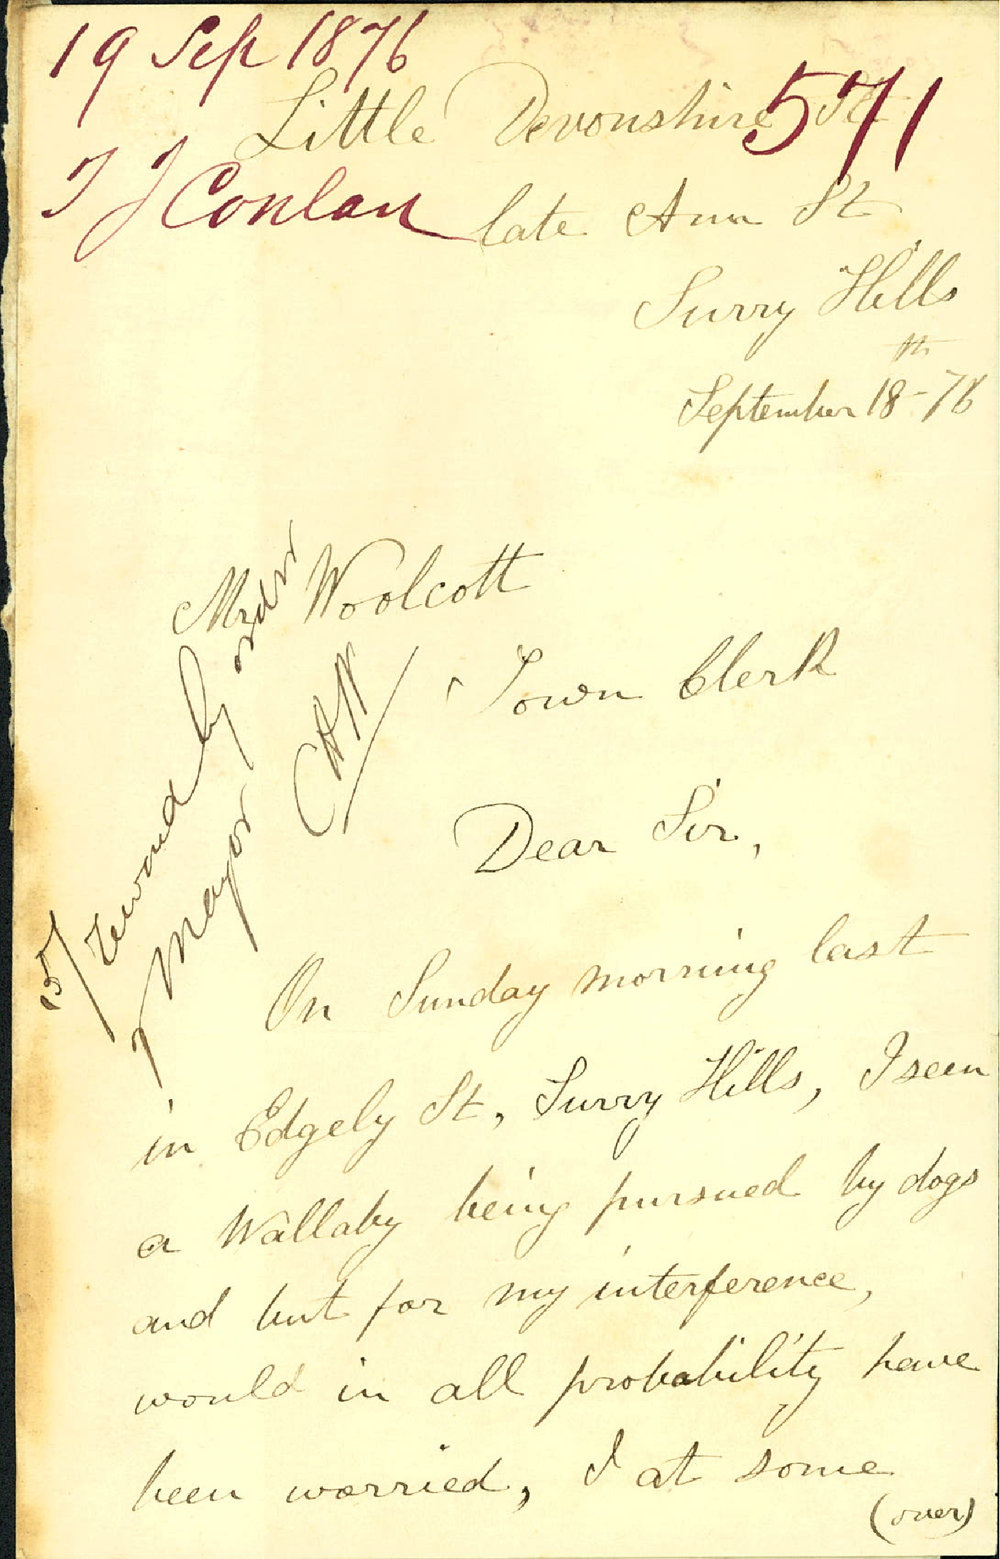 19 Sep 1876
Little Devonshire St
571
T J Conlan
late Ann St
Surry Hills
September 18th -76
Mr Woolcott
Town Clerk
5/ reward by order
Mayor
CHW
Dear Sir,
On Sunday morning last
in Edgely St, Surry Hills, I seen
a Wallaby being pursued by dogs
and but for my interference,
would in all probability have
been worried, I at some
(over)